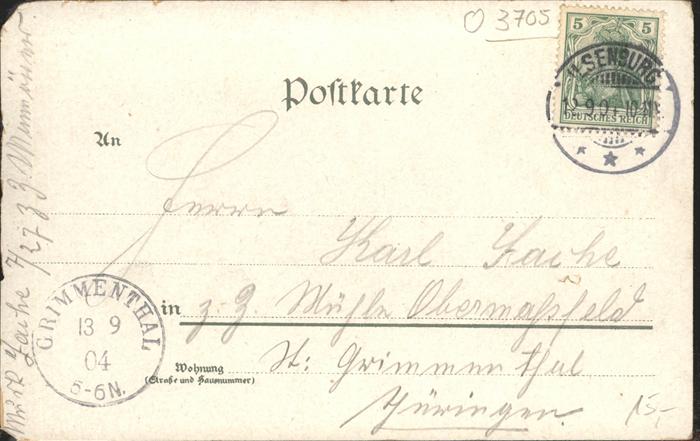 3705
5 5
DEUTSCHES REICH
ILSENBURG
12 9 04 10-11
Postkarte
An
Herrn
Karl Zache
in z. Z. Mühle Obermaßfeld
Wohnung
(Straße und Hausnummer)
St: Grimmenthal
Thüringen.
GRIMMENTHAL
13 9
04
5-6N.
15,-
Zache